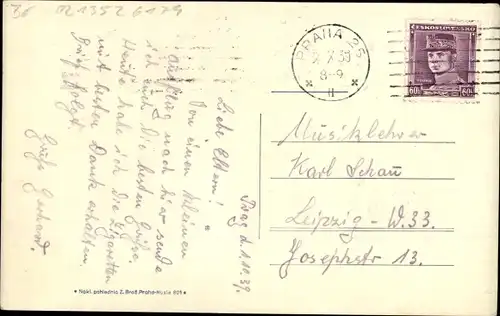 26 021352 6179
PRAHA 25
2. X 39
8-9
II
ČESKOSLOVENSKO
60h
Prag d. 1.10.39.
Liebe Eltern!
Von einem kleinen
Ausflug nach hier sende
ich euch die besten Grüße.
Heute habe ich die Zigaretten
mit besten Dank erhalten.
Brief folgt.
Gruß Gerhard.
Musiklehrer
Karl Schau
Leipzig - W. 33.
Josephstr 13.
• Nákl. pohlednic Z. Brož, Praha-Nusle 801 •